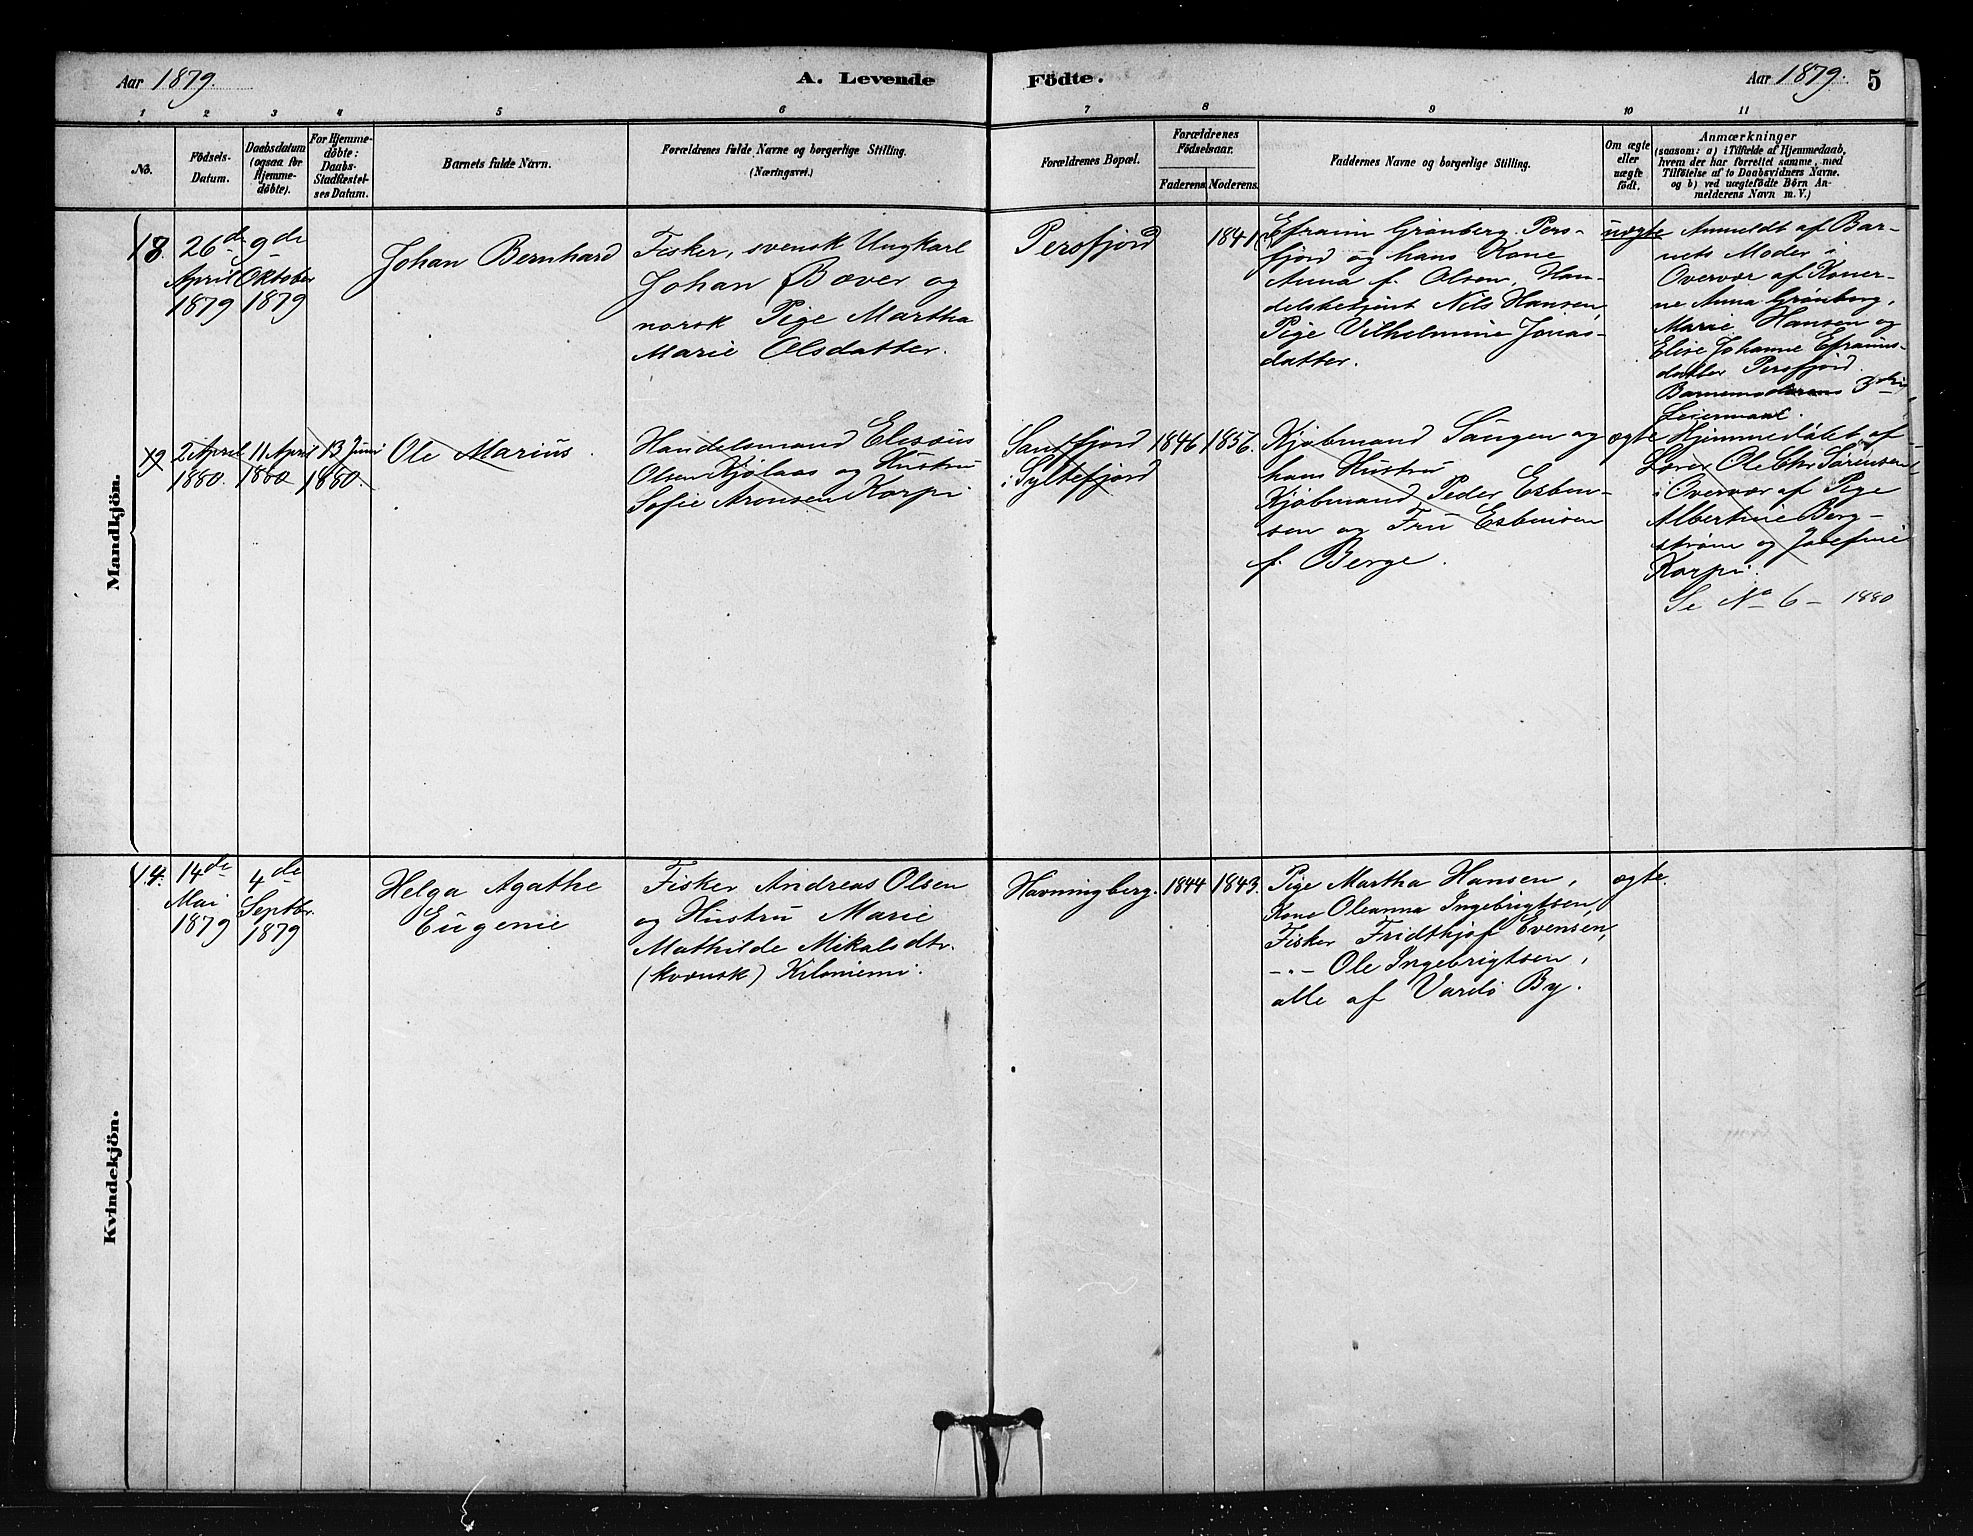 Aar 1879.
A. Levende
Födte.
Aar 1879.
5
1
2
3
4
5
6
7
8
9
10
11
No.
Födsels-
Datum.
Daabsdatum
(ogsaa for
Hjemme-
döbte).
For Hjemme-
döbte:
Daabs-
Stadfæstel-
ses Datum.
Barnets fulde Navn.
Forældrenes fulde Navne og borgerlige Stilling.
(Næringsvei.)
Forældrenes Bopæl.
Forældrenes
Födselsaar.
Faderens.
Moderens.
Faddernes Navne og borgerlige Stilling.
Om ægte
eller
uægte
födt.
Anmærkninger
(saasom: a) i Tilfælde af Hjemmedaab,
hvem der har forrettet samme, med
Tilföielse af to Daabsvidners Navne.
og b) ved uægtefödte Börn An-
melderens Navn m. V.)
Mandkjön.
18.
26de
April
1879
9de
Oktober
1879
Johan Bernhard
Fisker, svensk Ungkarl
Johan Bæver og
norsk Pige Martha
Marie Olsdatter.
Persfjord
1841
Efraim Grønberg Pers-
fjord og hans Kone
Anna f. Olsen, Han-
delsbetjent Nils Hansen,
Pige Vilhelmine Jonas-
datter.
uægte
Anmeldt af Bar-
nets Moder i
Overvær af Koner-
ne Anna Grønberg,
Marie Hansen og
Elise Johanne Efraims-
datter Persfjord.
Barnemoderens 3die
Leiermaal.
19
2 April
1880.
11 April
1880
13 Juni
1880.
Ole Marius.
Handelsmand Elisæus
Olsen Kjølaas og Hustru
Sofie Aronsen Korpi
Sandfjord
i Syltefjord
1846
1856.
Kjøbmand Saugen og
hans Hustru
Kjøbmand Peder Esben-
sen og Fru Esbensen
f. Berge.
ægte
Hjemmedøbt af
Lærer Ole Chr Sørensen
i Overvær af Pige
Albertine Berg-
strøm og Josefine
Korpi.
Se No 6 – 1880
Kvindekjön.
14.
14de
Mai
1879
4de
Septbr.
1879
Helga Agathe
Eugenie
Fisker Andreas Olsen
og Hustru Marie
Mathilde Mikalsdtr.
(kvænsk) Kiloniemi.
Havningberg.
1844
1843.
Pige Martha Hansen,
Kone Oleanna Ingebrigtsen,
Fisker Fridthjof Evensen,
-"- Ole Ingebrigtsen,
alle af Vardø By.
ægte.